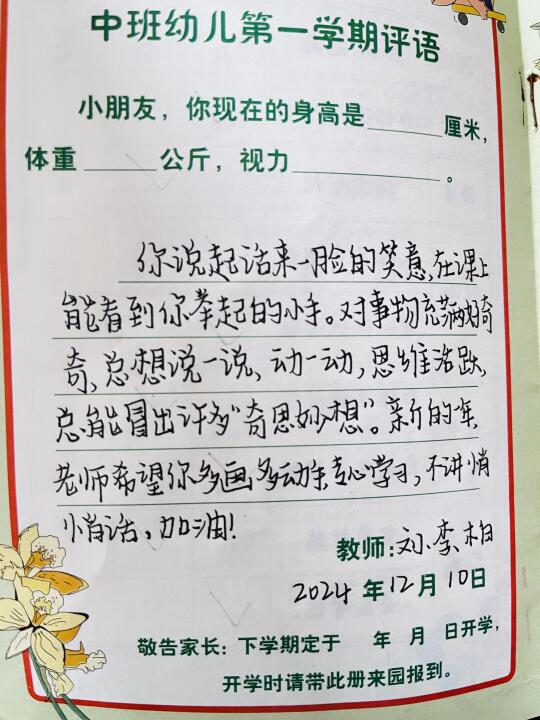 中班幼儿第一学期评语
小朋友，你现在的身高是______厘米，
体重______公斤，视力____________。
你说起话来一脸的笑意，在课上
能看到你举起的小手。对事物充满好奇
奇，总想说一说，动一动，思维活跃，
总能冒出许多“奇思妙想”。新的一年，
老师希望你多画多动手，专心学习，不讲悄
悄话，加油！
教师：刘、李、柏
2024年12月10日
敬告家长：下学期定于 年 月 日开学，
开学时请带此册来园报到。